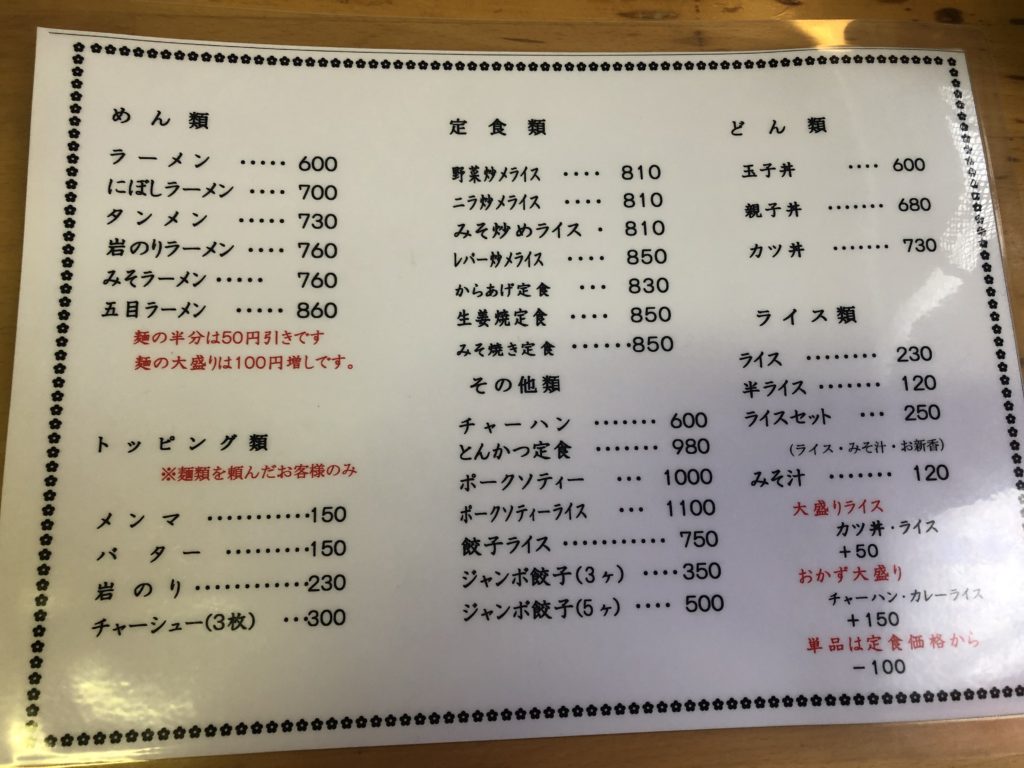 めん類
ラーメン ‥‥‥ 600
にぼしラーメン ‥‥ 700
タンメン ‥‥‥ 730
岩のりラーメン ‥‥ 760
みそラーメン ‥‥‥ 760
五目ラーメン ‥‥‥ 860
麺の半分は50円引きです
麺の大盛りは100円増しです。
トッピング類
※麺類を頼んだお客様のみ
メンマ ‥‥‥‥‥‥150
バター ‥‥‥‥‥150
岩のり ‥‥‥‥‥‥230
チャーシュー(3枚) ‥‥300
定食類
野菜炒メライス ‥‥ 810
ニラ炒メライス ‥‥ 810
みそ炒めライス ・ 810
レバー炒メライス ‥‥ 850
からあげ定食 ‥‥ 830
生姜焼定食 ‥‥ 850
みそ焼き定食 ‥‥‥‥850
その他類
チャーハン ‥‥‥‥ 600
とんかつ定食 ‥‥‥‥ 980
ポークソティー ‥‥ 1000
ポークソティーライス ‥‥ 1100
餃子ライス ‥‥‥‥‥‥ 750
ジャンボ餃子(3ヶ) ‥‥350
ジャンボ餃子(5ヶ) ‥‥ 500
どん類
玉子丼 ‥‥ 600
親子丼 ‥‥‥‥ 680
カツ丼 ‥‥‥‥ 730
ライス類
ライス ‥‥‥‥ 230
半ライス ‥‥‥‥ 120
ライスセット ‥‥ 250
(ライス・みそ汁・お新香)
みそ汁 ‥‥‥‥ 120
大盛りライス
カツ丼・ライス
+50
おかず大盛り
チャーハン・カレーライス
+150
単品は定食価格から
-100